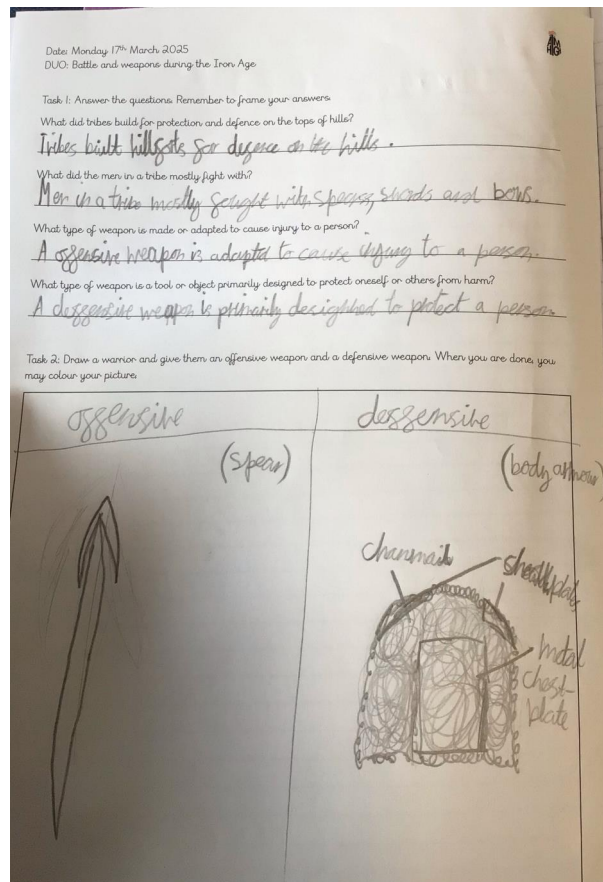 Date: Monday 17th March 2025
DUO: Battle and weapons during the Iron Age
Task 1: Answer the questions. Remember to frame your answers.
What did tribes build for protection and defence on the tops of hills?
Tribes built hillforts for defence on the hills.
What did the men in a tribe mostly fight with?
Men in a tribe mostly fought with spears, swords and bows.
What type of weapon is made or adapted to cause injury to a person?
A offensive weapon is adaptd to cause injury to a person.
What type of weapon is a tool or object primarily designed to protect oneself or others from harm?
A deffensive weapon is primarily desighhed to protect a person
Task 2: Draw a warrior and give them an offensive weapon and a defensive weapon. When you are done, you
may colour your picture.
offensive
deffensive
(spear)
(body armour)
chanmail
plates
metal
chest-
plate